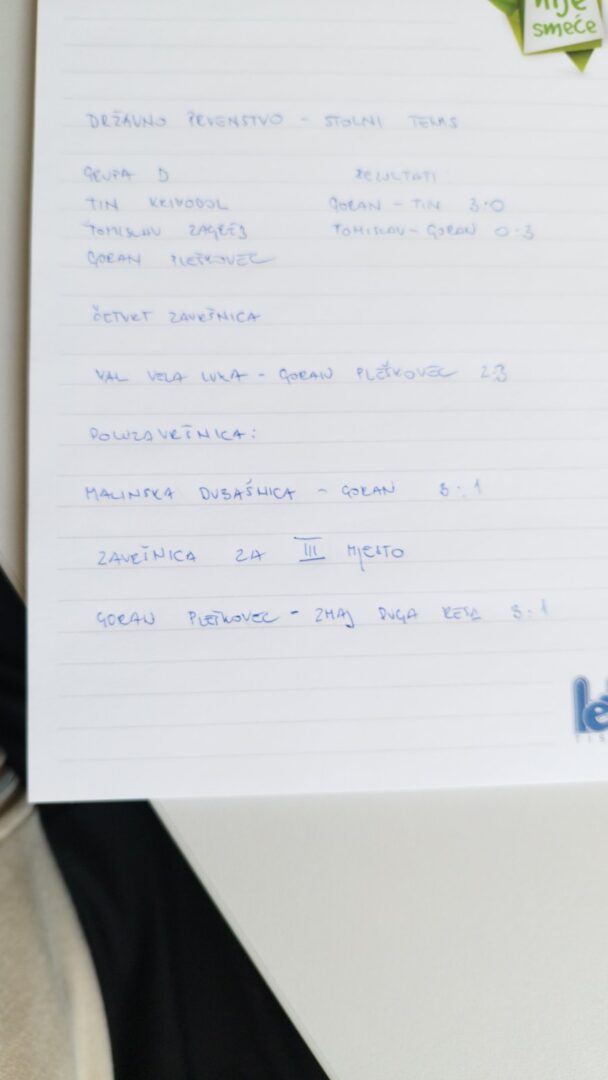 nije
smeće
DRŽAVNO PRVENSTVO - STOLNI TENIS
GRUPA D REZULTATI:
TIN KRIVODOL GORAN - TIN 3:0
TOMISLAV ZAGREB TOMISLAV - GORAN 0:3
GORAN PLEŠKOVEC
ČETVRT ZAVRŠNICA
VAL VELA LUKA - GORAN PLEŠKOVEC 2:3
POLUZAVRŠNICA:
MALINSKA DUBAŠNICA - GORAN 3:1
ZAVRŠNICA ZA III MJESTO
GORAN PLEŠKOVEC - ZMAJ DUGA RESA 3:1